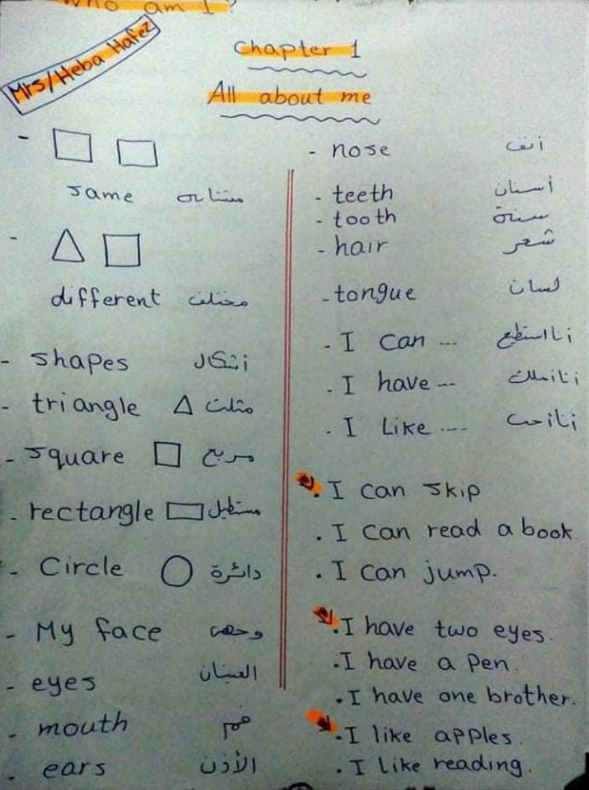 Who am I?
Mrs/Heba Hafez
Chapter 1
All about me
- same متشابه
- different مختلف
- shapes أشكال
- triangle مثلث
- square مربع
- rectangle مستطيل
- Circle دائرة
- My face وجهى
- eyes العينان
- mouth فم
- ears الأذن
- nose أنف
- teeth أسنان
- tooth سنة
- hair شعر
- tongue لسان
- I can ... أنا استطيع
. I have --- أنا أملك
. I Like ---- أنا أحب
. I can skip
. I can read a book
. I can jump.
. I have two eyes.
. I have a pen.
. I have one brother.
. I like apples.
. I like reading.